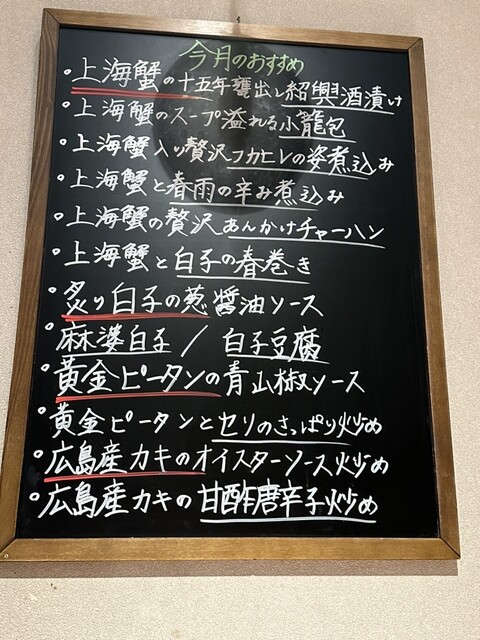 今月のおすすめ
・上海蟹の十五年甕出し紹興酒漬け
・上海蟹のスープ溢れる小籠包
・上海蟹入り贅沢フカヒレの姿煮込み
・上海蟹と春雨の辛み煮込み
・上海蟹の贅沢あんかけチャーハン
・上海蟹と白子の春巻き
・炙り白子の葱醬油ソース
・麻婆白子/白子豆腐
・黄金ピータンの青山椒ソース
・黄金ピータンとセリのさっぱり炒め
・広島産カキのオイスターソース炒め
・広島産カキの甘酢唐辛子炒め